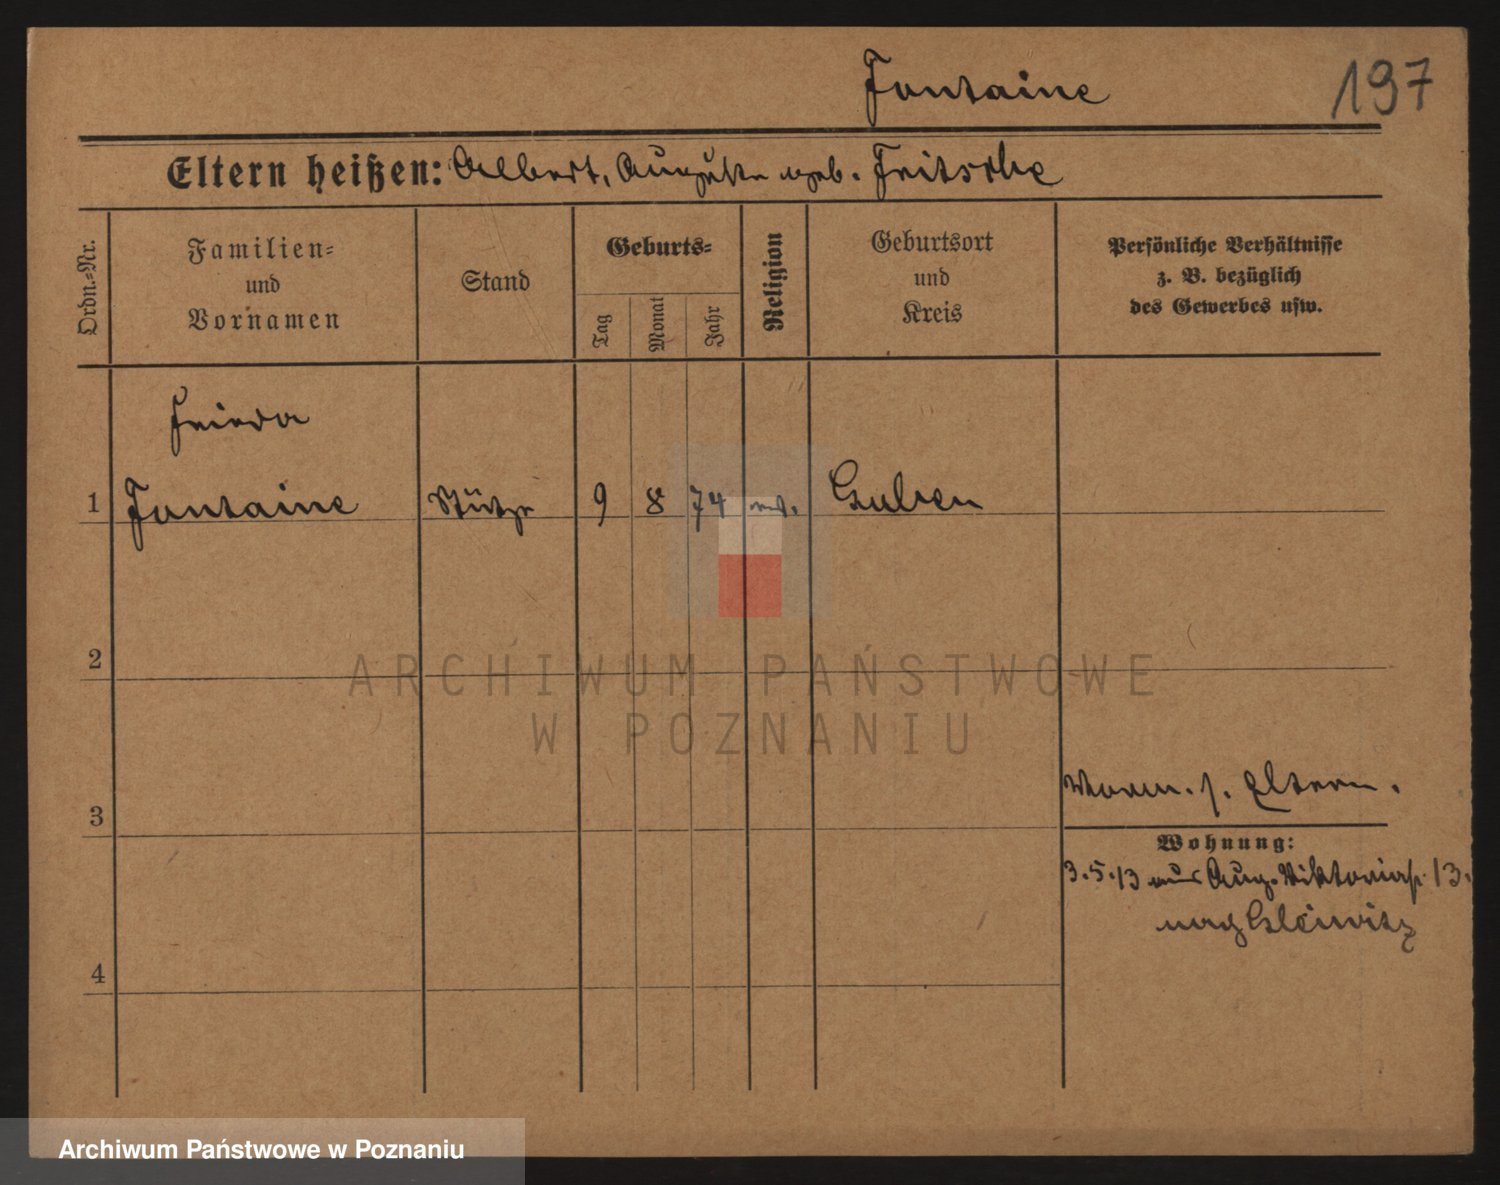 Fontaine
197
Eltern heißen: Albert, Auguste geb. Fritsche
Ordn.-Nr.
Familien-
und
Vornamen
Stand
Geburts-
Tag
Monat
Jahr
Religion
Geburtsort
und
Kreis
Persönliche Verhältnisse
z. B. bezüglich
des Gewerbes usw.
Frieda
1 Fontaine Stütze 9 8 74 ev. Guben
2
ARCHIWUM PAŃSTWOWE
W POZNANIU
3
Eltern.
Wohnung:
3.5.13 aus Aug. Viktoriastr. 13.
nach Gleiwitz
4
Archiwum Państwowe w Poznaniu